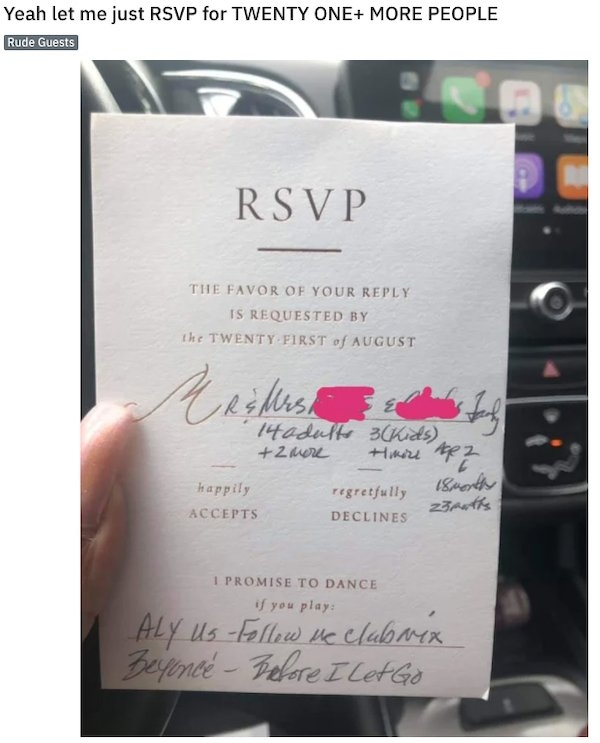 Yeah let me just RSVP for TWENTY ONE+ MORE PEOPLE
Rude Guests
RSVP
THE FAVOR OF YOUR REPLY
IS REQUESTED BY
the TWENTY-FIRST of AUGUST
MR & Mrs & Family
14 adults 3(Kids)
+2 more +1 more Age 2
6
happily regretfully 18 months
ACCEPTS DECLINES 23 months
I PROMISE TO DANCE
if you play:
ALY Us - Follow Me club mix
Beyoncé - Before I Let Go